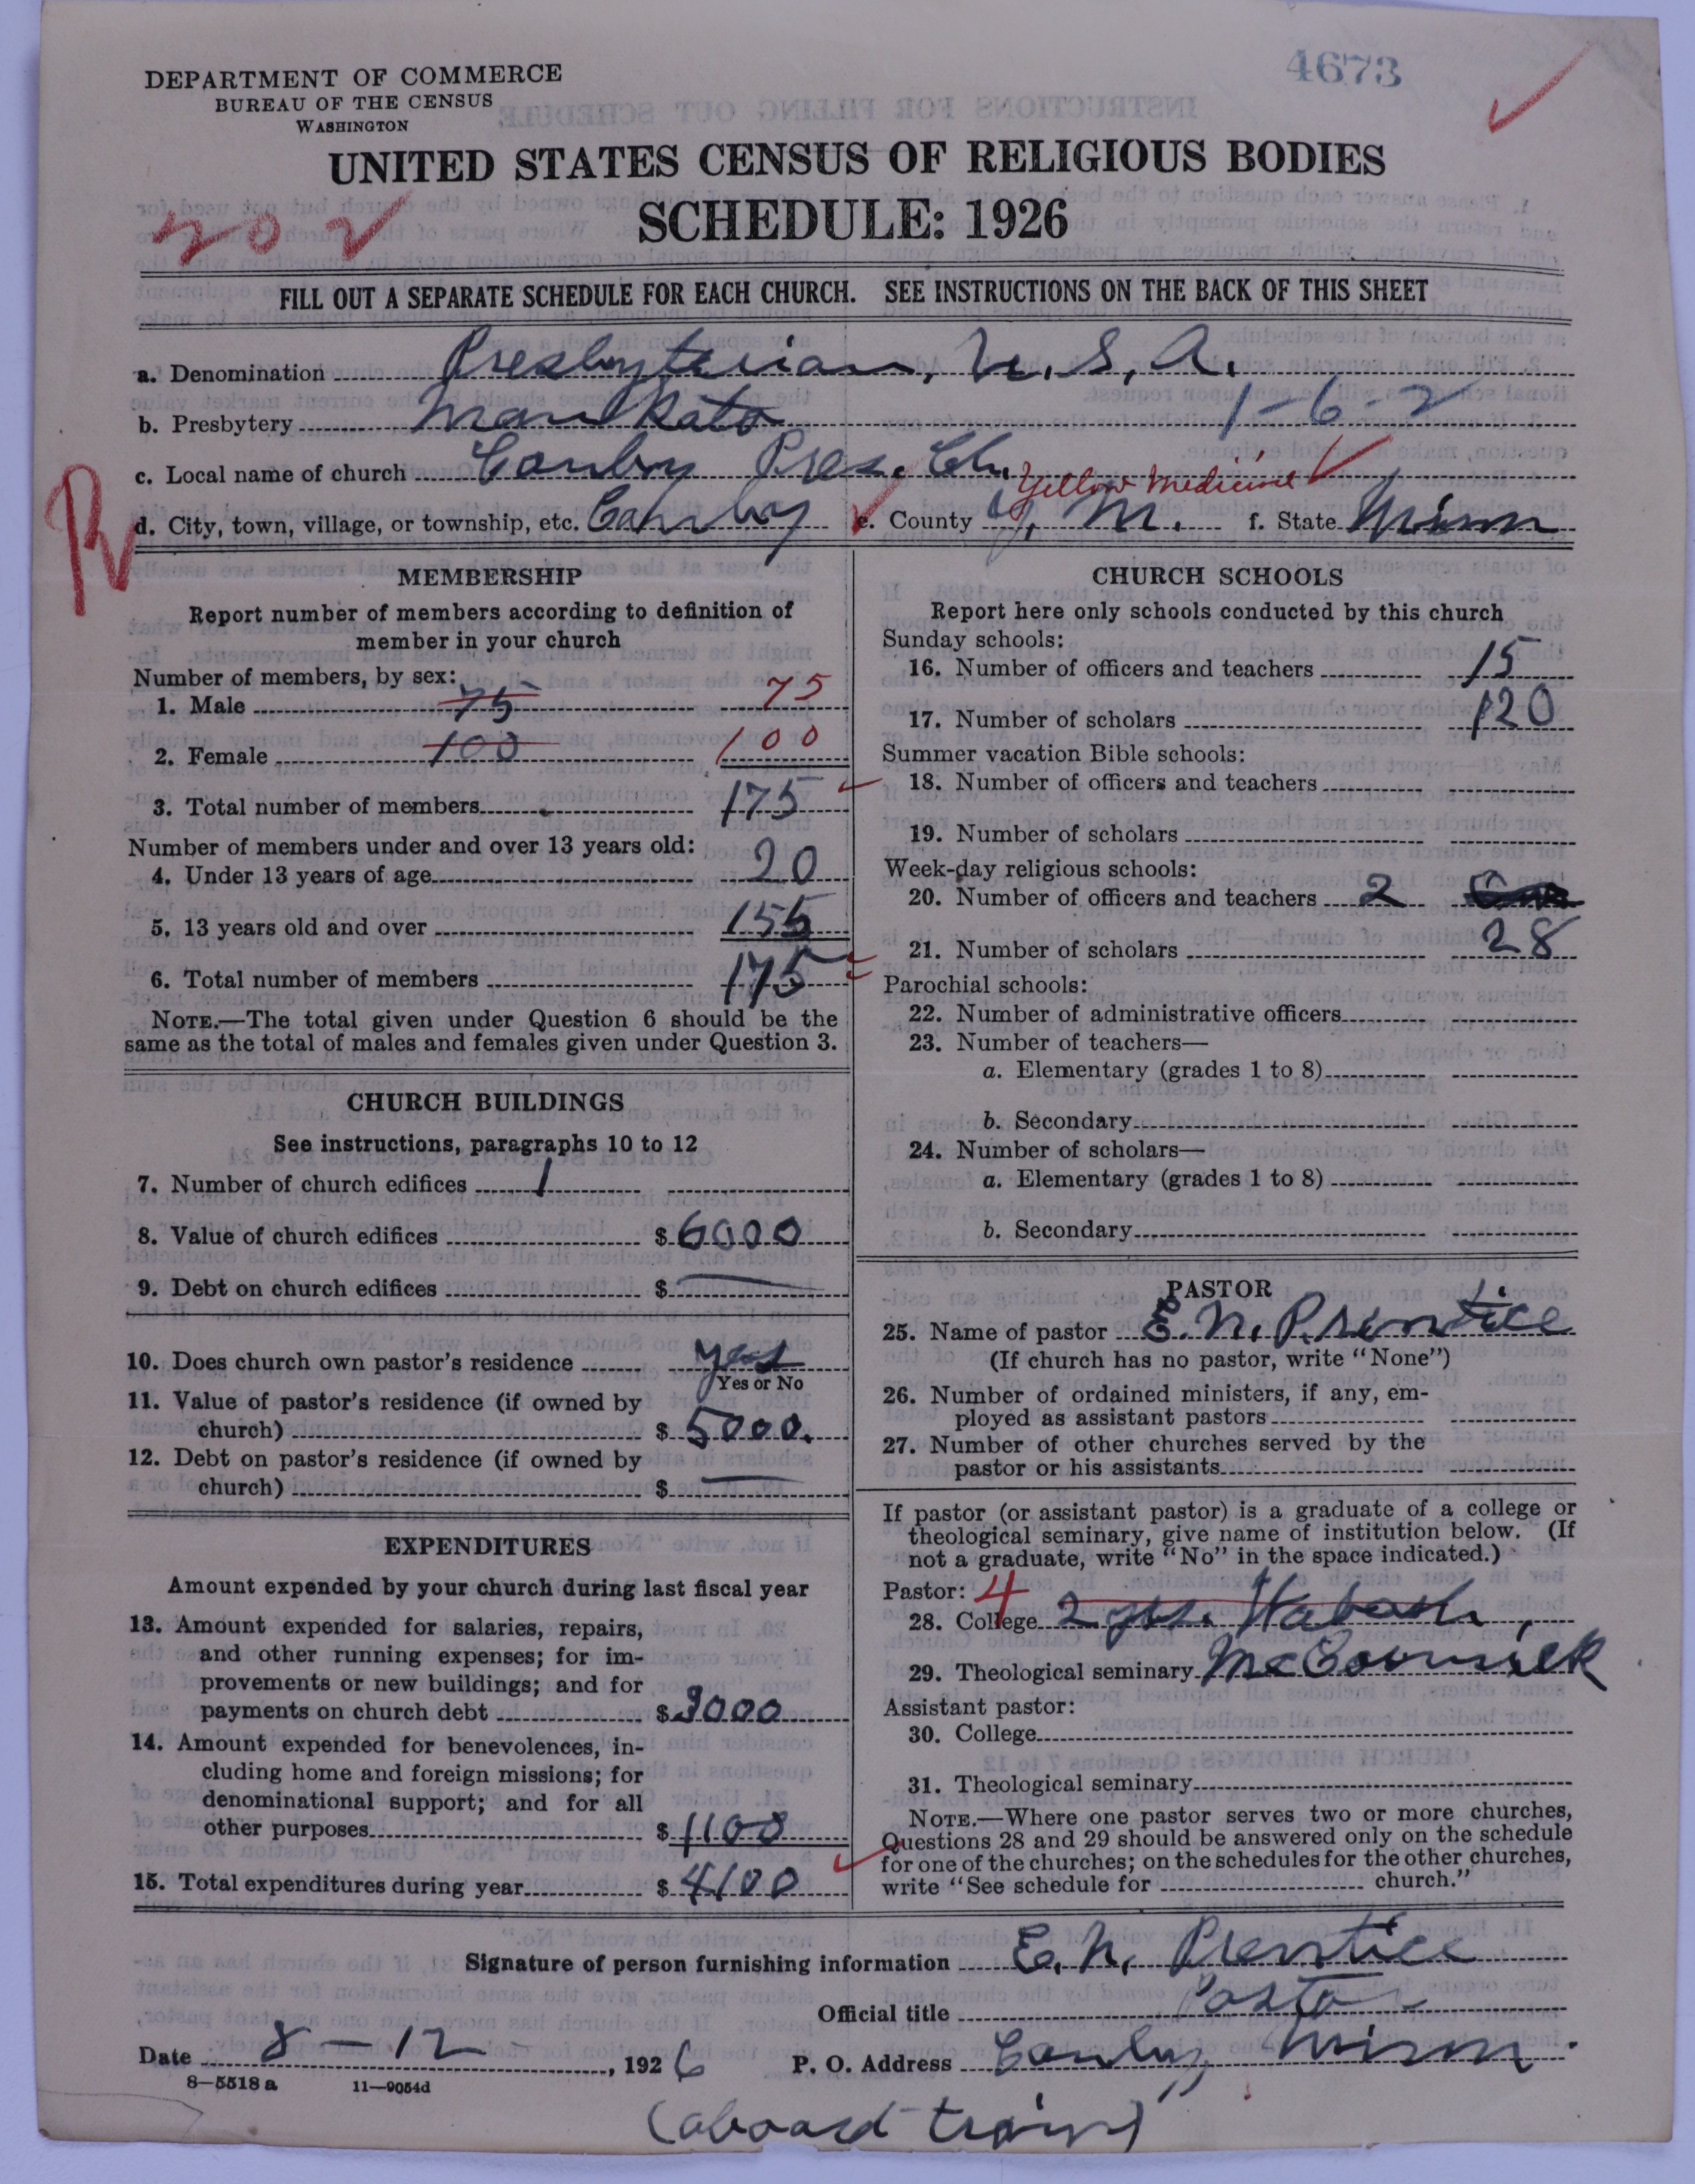 4673
DEPARTMENT OF COMMERCE
BUREAU OF THE CENSUS
WASHINGTON
UNITED STATES CENSUS OF RELIGIOUS BODIES
SCHEDULE: 1926
202
FILL OUT A SEPARATE SCHEDULE FOR EACH CHURCH. SEE INSTRUCTIONS ON THE BACK OF THIS SHEET
a. Denomination Presbyterian, U.S.A.
b. Presbytery Mankato 1-6-2
c. Local name of church Canby Pres. Ch.
Yellow Medicine
d. City, town, village, or township, etc. Canby e. County Y. M. f. State Minn
R
MEMBERSHIP
Report number of members according to definition of
member in your church
Number of members, by sex:
1. Male 75 75
2. Female 100 100
3. Total number of members 175
Number of members under and over 13 years old:
4. Under 13 years of age 20
5. 13 years old and over 155
6. Total number of members 175
NOTE.—The total given under Question 6 should be the
same as the total of males and females given under Question 3.
CHURCH BUILDINGS
See instructions, paragraphs 10 to 12
7. Number of church edifices 1
8. Value of church edifices $ 6000
9. Debt on church edifices $ —
10. Does church own pastor's residence yes
Yes or No
11. Value of pastor's residence (if owned by
church) $ 5000.
12. Debt on pastor's residence (if owned by
church) $ —
EXPENDITURES
Amount expended by your church during last fiscal year
13. Amount expended for salaries, repairs,
and other running expenses; for im-
provements or new buildings; and for
payments on church debt $ 3000
14. Amount expended for benevolences, in-
cluding home and foreign missions; for
denominational support; and for all
other purposes $ 1100
15. Total expenditures during year $ 4100
CHURCH SCHOOLS
Report here only schools conducted by this church
Sunday schools:
16. Number of officers and teachers 15
17. Number of scholars 120
Summer vacation Bible schools:
18. Number of officers and teachers
19. Number of scholars
Week-day religious schools:
20. Number of officers and teachers 2
21. Number of scholars 28
Parochial schools:
22. Number of administrative officers
23. Number of teachers—
a. Elementary (grades 1 to 8)
b. Secondary
24. Number of scholars—
a. Elementary (grades 1 to 8)
b. Secondary
PASTOR
25. Name of pastor E. N. Prentice
(If church has no pastor, write "None")
26. Number of ordained ministers, if any, em-
ployed as assistant pastors
27. Number of other churches served by the
pastor or his assistants
If pastor (or assistant pastor) is a graduate of a college or
theological seminary, give name of institution below. (If
not a graduate, write "No" in the space indicated.)
Pastor: 4
28. College 2 yrs. Wabash,
29. Theological seminary McCormick
Assistant pastor:
30. College
31. Theological seminary
NOTE.—Where one pastor serves two or more churches,
Questions 28 and 29 should be answered only on the schedule
for one of the churches; on the schedules for the other churches,
write "See schedule for church."
Signature of person furnishing information E. N. Prentice
Official title Pastor
Date 8-12, 1926 P. O. Address Canby, Minn.
8-5518 a 11-9054d
(aboard train)